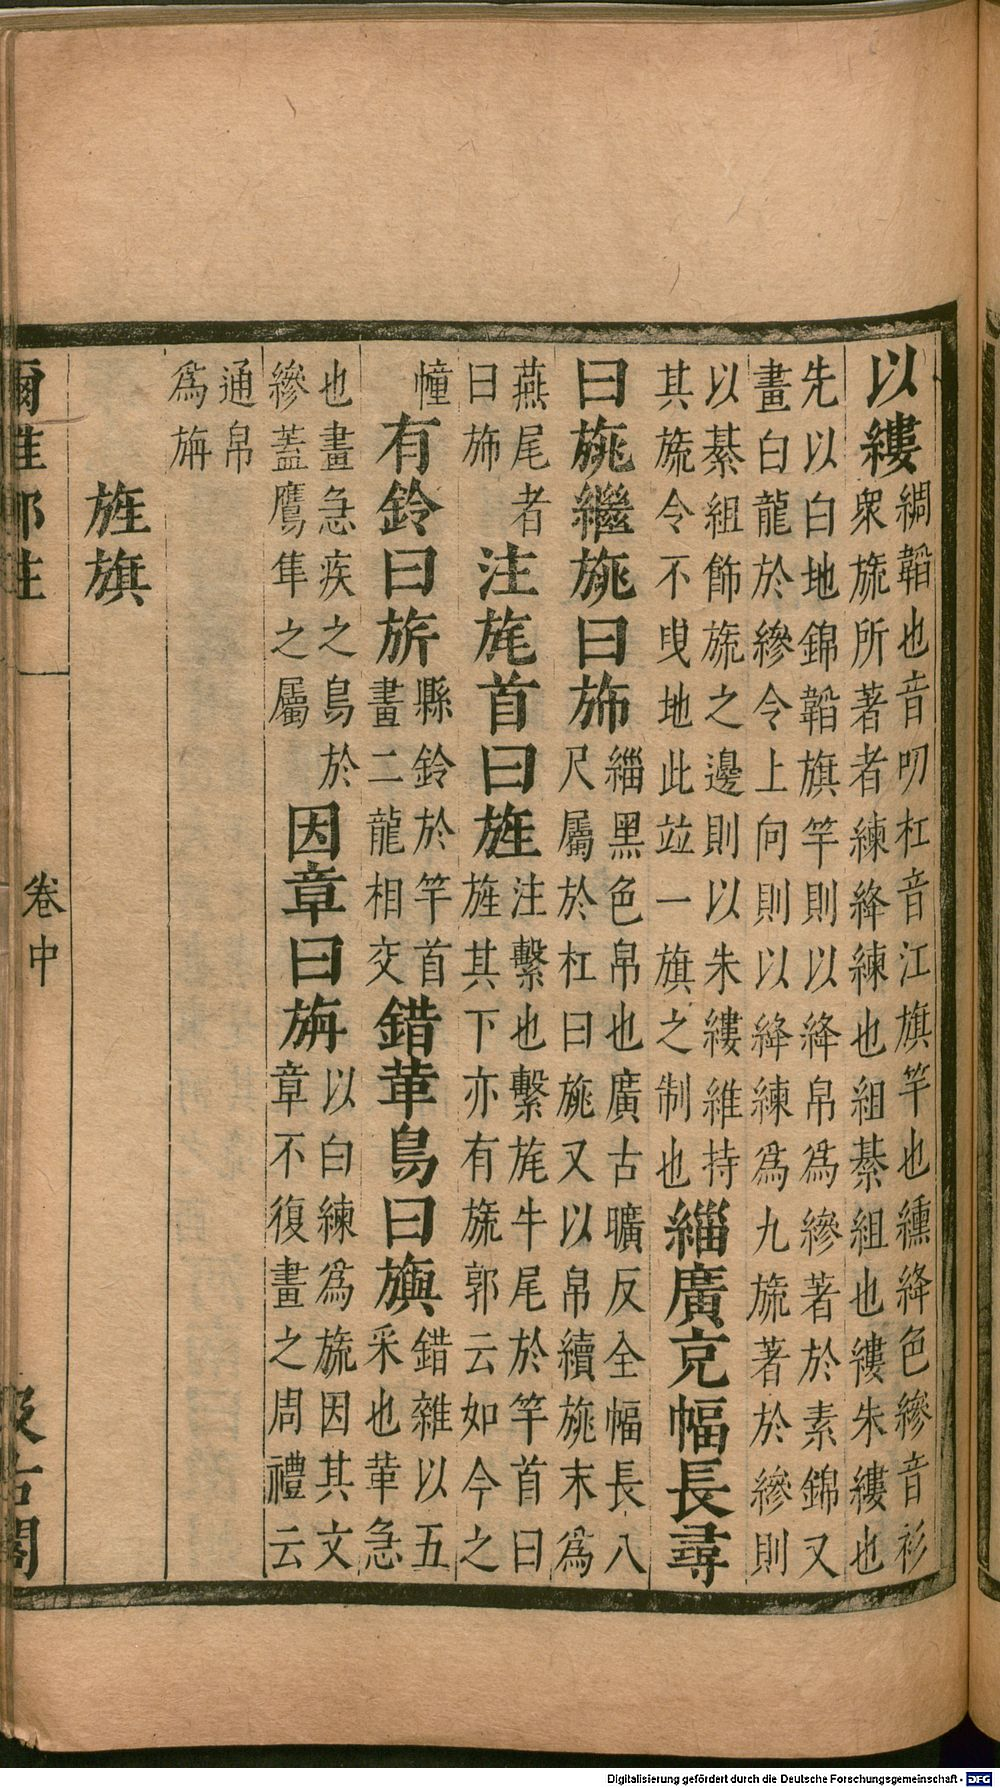 以縷
綢韜也音叨杠音江旗竿也纁絳色縿音衫
衆旒所著者練絳練也組綦組也縷朱縷也
先以白地錦韜旗竿則以絳帛爲縿著於素錦又
畫白龍於縿令上向則以絳練爲九旒著於縿則
以綦組飾旒之邊則以朱縷維持
其旒令不曳地此竝一旗之制也
緇廣充幅長尋
曰旐繼旐曰斾
緇黑色帛也廣古曠反全幅長八
尺屬於杠曰旐又以帛續旐末爲
燕尾者
曰斾
注旄首曰旌
注繫也繫旄牛尾於竿首曰
旌其下亦有旒郭云如今之
幢
有鈴曰旂
縣鈴於竿首
畫二龍相交
錯革鳥曰旟
錯雜以五
采也革急
也畫急疾之鳥於
縿蓋鷹隼之屬
因章曰旃
以白練爲旒因其文
章不復畫之周禮云
通帛
爲旃
旌旗
爾雅鄭注
卷中
汲古閣
Digitalisierung gefördert durch die Deutsche Forschungsgemeinschaft - DFG